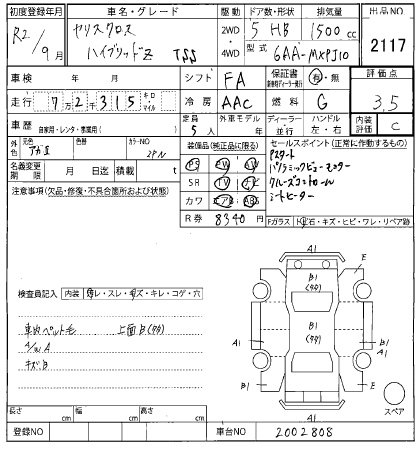 初度登録年月 車名・グレード 駆動 ドア数・形状 排気量 出品NO
R2/9月 ヤリスクロス ハイブリッドZ TSS 2WD・4WD 5 HB 1500cc 2117
型式 6AA-MXPJ10
車検 年 月 シフト FA 保証書 有・無 評価点
走行 7万2千315 キロ・マイル 冷房 AAC 燃料 G 3.5
車歴 自家用・レンタ・事業用( ) 定員 5人 外車モデル 年 ディーラー・並行 ハンドル 左・右 内装評価 C
外色 元色 色替 カラーNO 2PN
装備品(純正品に限る) セールスポイント(正常に作動するもの)
名義変更期限 月 日迄 積載 t
PS PW AW
SR TV ナビ
カワ エアB ABS
Pスタート
パノラミックビューモニター
クルーズコントロール
シートヒーター
注意事項(欠品・修復・不具合箇所および状態)
R券 8340円 Fガラス トビ石・キズ・ヒビ・ワレ・リペア跡
検査員記入 内装 ヨゴレ・スレ・キズ・キレ・コゲ・穴
車内ペット毛 上面B(タタ)
キズB
A1
E
B1
(タタ)
B1
(タタ)
A1
A1
B1
E
A1
スペア
長さ cm 幅 cm 高さ cm
登録NO 車台NO 2002808